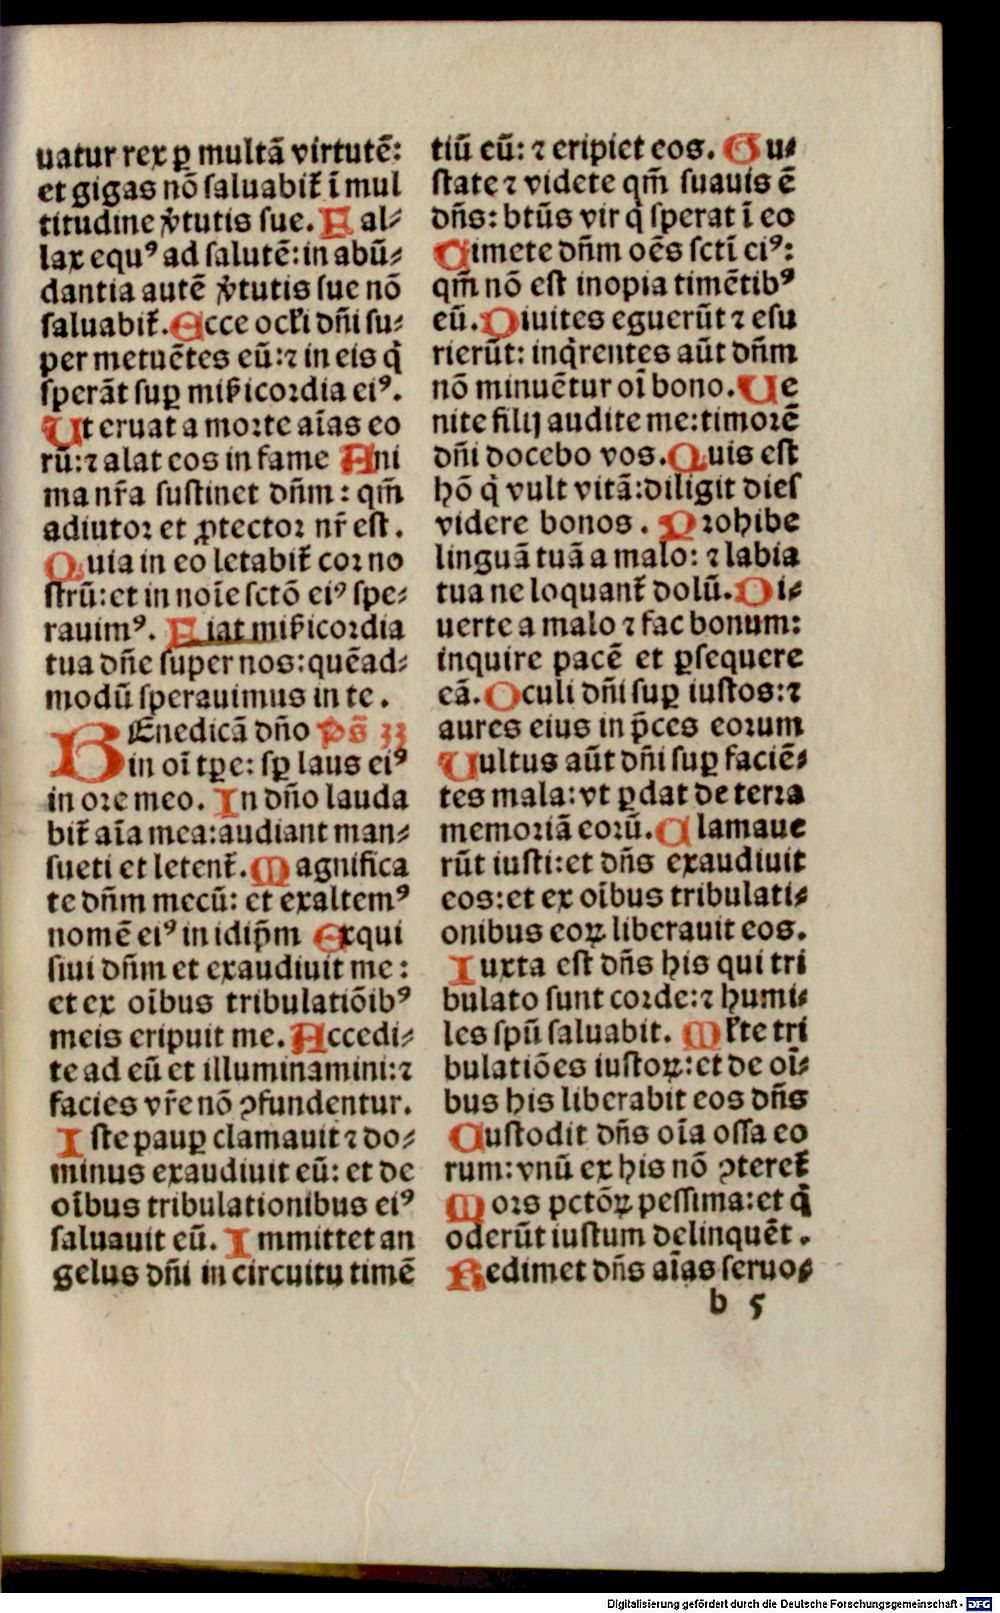 uatur rex ꝑ multā virtutē:
et gigas nō saluabit̄ ī mul
titudine v̓tutis sue. Fal⸗
lax equꝰ ad salutē: in abū⸗
dantia autē v̓tutis sue nō
saluabit̄. Ecce ocl̓i dn̄i su⸗
per metuētes eū: ⁊ in eis q̇
sperāt suꝑ mi̅icoꝛdia eiꝰ.
Ut eruat a moꝛte aīas eo
rū: ⁊ alat eos in fame Ani
ma nr̄a sustinet dn̄m: qm̄
adiutoꝛ et ꝓtectoꝛ nr̄ est.
Quia in eo letabit̄ coꝛ no
strū: et in noīe sctō eiꝰ spe⸗
rauimꝰ. Fiat mi̅icoꝛdia
tua dn̄e super nos: quēad⸗
modū sperauimus in te.
BEnedicā dn̄o Ps̄ 33
in oī tꝑe: sꝑ laus eiꝰ
in oꝛe meo. In dn̄o lauda
bit̄ aīa mea: audiant man⸗
sueti et letent̄. Magnifica
te dn̄m mecū: et exaltemꝰ
nomē eiꝰ in idip̄m Exqui
siui dn̄m et exaudiuit me:
et ex oībus tribulatiōibꝰ
meis eripuit me. Accedi⸗
te ad eū et illuminamini: ⁊
facies vr̄e nō ꝯfundentur.
Iste pauꝑ clamauit ⁊ do⸗
minus exaudiuit eū: et de
oībus tribulationibus eiꝰ
saluauit eū. Immittet an
gelus dn̄i in circuitu timē
tiū eū: ⁊ eripiet eos. Gu⸗
state ⁊ videte qm̄ suauis ē
dn̄s: btūs vir q̇ sperat ī eo
Timete dn̄m oēs sctī eiꝰ:
qm̄ nō est inopia timētibꝰ
eū. Diuites eguerūt ⁊ esu
rierūt: inq̇rentes aūt dn̄m
nō minuētur oī bono. Ue
nite filij audite me: timoꝛē
dn̄i docebo vos. Quis est
hō q̇ vult vitā: diligit dies
videre bonos. Pꝛohibe
linguā tuā a malo: ⁊ labia
tua ne loquant̄ dolū. Di⸗
uerte a malo ⁊ fac bonum:
inquire pacē et ꝑsequere
eā. Oculi dn̄i suꝑ iustos: ⁊
aures eius in p̄ces eoꝛum
Uultus aūt dn̄i suꝑ faciē⸗
tes mala: vt ꝑdat de terꝛa
memoꝛiā eoꝛū. Clamaue
rūt iusti: et dn̄s exaudiuit
eos: et ex oībus tribulati⸗
onibus eoꝝ liberauit eos.
Iuxta est dn̄s his qui tri
bulato sunt coꝛde: ⁊ humi⸗
les spū saluabit. Ml̓te tri
bulatiōes iustoꝝ: et de oī⸗
bus his liberabit eos dn̄s
Custodit dn̄s oīa ossa eo
rum: vnū ex his nō ꝯteret̄
Moꝛs pctōꝝ pessima: et q̇
oderūt iustum delinquēt.
Redimet dn̄s aīas seruo⸗
b 5
Digitalisierung gefördert durch die Deutsche Forschungsgemeinschaft - DFG